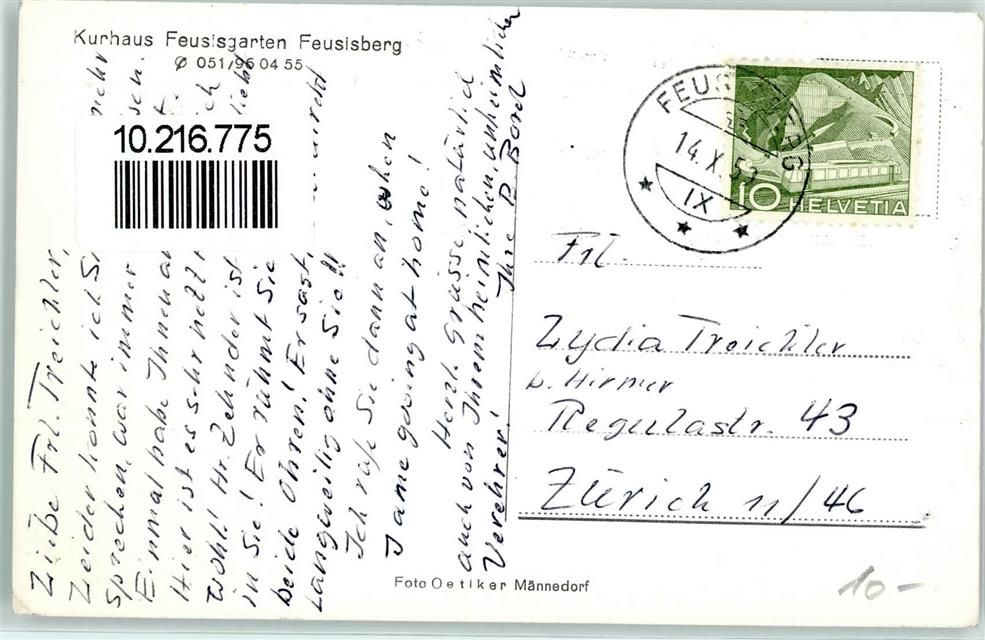 Kurhaus Feusisgarten Feusisberg
∅ 051/96 04 55
10.216.775
Liebe Frl. Treichler,
Leider konnte ich Si nicht
sprechen, war immer
Einmal habe Ihnen
Hier ist es sehr nett
wohl! Hr. Zehnder ist
in Sie! Er rühmt Sie
beide Ohren! Er sagt,
Langweilig ohne Sie!!
Ich rufe Sie dann an, when
I ame going at home!
Herzl. Grüsse natürlich
auch von Ihrem heimlichen, unheimlichen
Verehrer! Ihre P. Bond
FEUSISBERG
14.X.59
IX
10 HELVETIA
Frl.
Lydia Treichler
b. Hirmer
Regulastr. 43
Zürich 11/46
Foto Oetiker Männedorf
10-